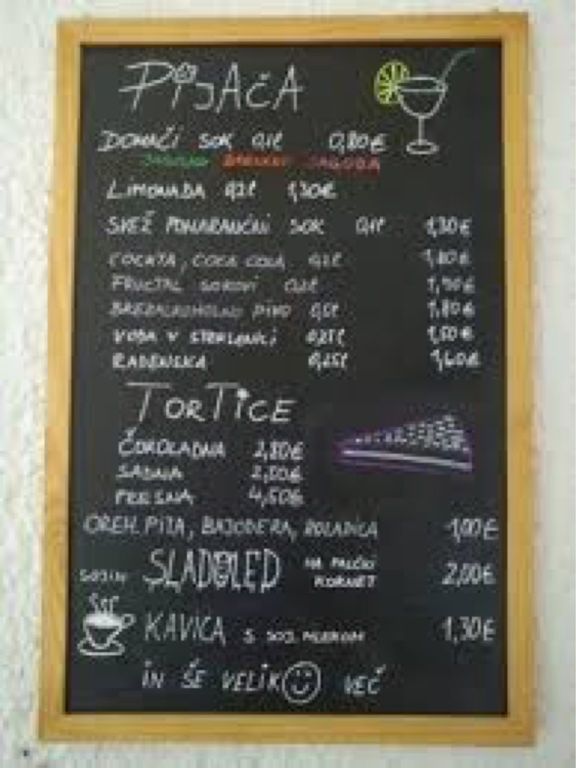 PijAČA
DOMAČI SOK 0,1ℓ 0,80€
JAGODA
LIMONADA 0,2ℓ 1,30€
SVEŽ POMARANČNI SOK 0,1ℓ 1,30€
COCKTA, COCA COLA 0,2ℓ 1,80€
FRUCTAL SOKOVI 0,2ℓ 1,90€
BREZALKOHOLNO PIVO 0,5ℓ 1,80€
VODA V STEKLENICI 0,25ℓ 1,50€
RADENSKA 0,25ℓ 1,60€
TORTICE
ČOKOLADNA 2,80€
SADNA 2,80€
PRESNA 4,50€
OREH. PITA, BAJADERA, ROLADICA 1,00€
SOJIN SLADOLED NA PALČKI KORNET 2,00€
KAVICA S SOJ. MLEKOM 1,30€
IN ŠE VELIKO VEČ